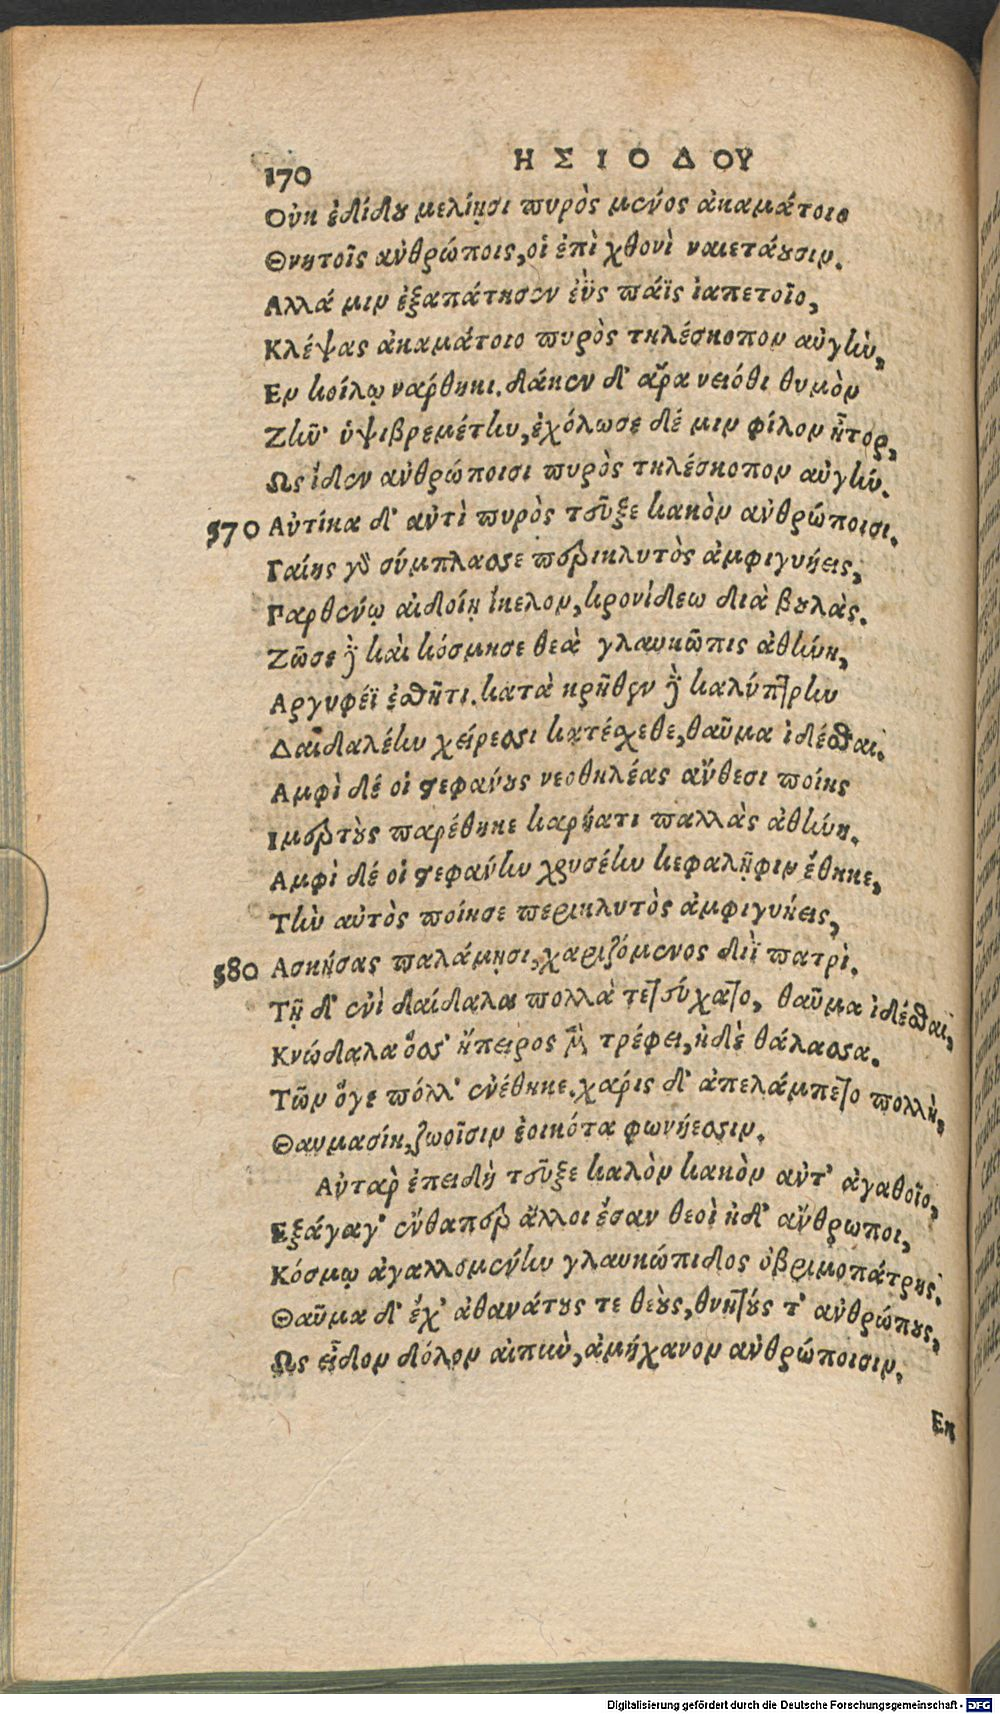 170
ΗΣΙΟΔΟΥ
Οὐκ ἐδίδου μελίῃσι πυρὸς μένος ἀκαμάτοιο
Θνητοῖς ἀνθρώποις, οἱ ἐπὶ χθονὶ ναιετάουσιν.
Αλλά μιν ἐξαπάτησεν ἐῢς πάϊς ἰαπετοῖο,
Κλέψας ἀκαμάτοιο πυρὸς τηλέσκοπον αὐγὴν,
Εν κοίλῳ νάρθηκι. δάκεν δ' ἄρα νειόθι θυμὸν
Ζῆν' ὑψιβρεμέτην, ἐχόλωσε δέ μιν φίλον ἦτορ,
Ως ἴδεν ἀνθρώποισι πυρὸς τηλέσκοπον αὐγήν.
570 Αὐτίκα δ' ἀντὶ πυρὸς τεῦξε κακὸν ἀνθρώποισι.
Γαίης γὰρ σύμπλασσε περικλυτὸς ἀμφιγυήεις,
Παρθένῳ αἰδοίῃ ἴκελον, κρονίδεω διὰ βουλάς.
Ζῶσε δὲ καὶ κόσμησε θεὰ γλαυκῶπις ἀθήνη,
Αργυφέῃ ἐσθῆτι. κατὰ κρῆθεν δὲ καλύπτρην
Δαιδαλέην χείρεσσι κατέσχεθε, θαῦμα ἰδέσθαι.
Αμφὶ δέ οἱ στεφάνους νεοθηλέας ἄνθεσι ποίης
Ιμερτοὺς παρέθηκε καρήατι παλλὰς ἀθήνη.
Αμφὶ δέ οἱ στεφάνην χρυσέην κεφαλῆφιν ἔθηκε,
Τὴν αὐτὸς ποίησε περικλυτὸς ἀμφιγυήεις,
580 Ασκήσας παλάμῃσι, χαριζόμενος διῒ πατρὶ.
Τῇ δ' ἐνὶ δαίδαλα πολλὰ τετεύχατο, θαῦμα ἰδέσθαι,
Κνώδαλα ὅσσ' ἤπειρος μὲν τρέφει, ἠδὲ θάλασσα.
Τῶν ὅγε πόλλ' ἐνέθηκε. χάρις δ' ἀπελάμπετο πολλὴ,
Θαυμασίη, ζωοῖσιν ἐοικότα φωνήεσσιν.
Αὐτὰρ ἐπειδὴ τεῦξε καλὸν κακὸν ἀντ' ἀγαθοῖο,
Εξάγαγ' ἔνθαπερ ἄλλοι ἔσαν θεοὶ ἠδ' ἄνθρωποι,
Κόσμῳ ἀγαλλομένην γλαυκώπιδος ὀβριμοπάτρης.
Θαῦμα δ' ἔχ' ἀθανάτους τε θεοὺς, θνητούς τ' ἀνθρώπους,
Ως εἶδον δόλον αἰπὺν, ἀμήχανον ἀνθρώποισιν.
Εκ
Digitalisierung gefördert durch die Deutsche Forschungsgemeinschaft - DFG